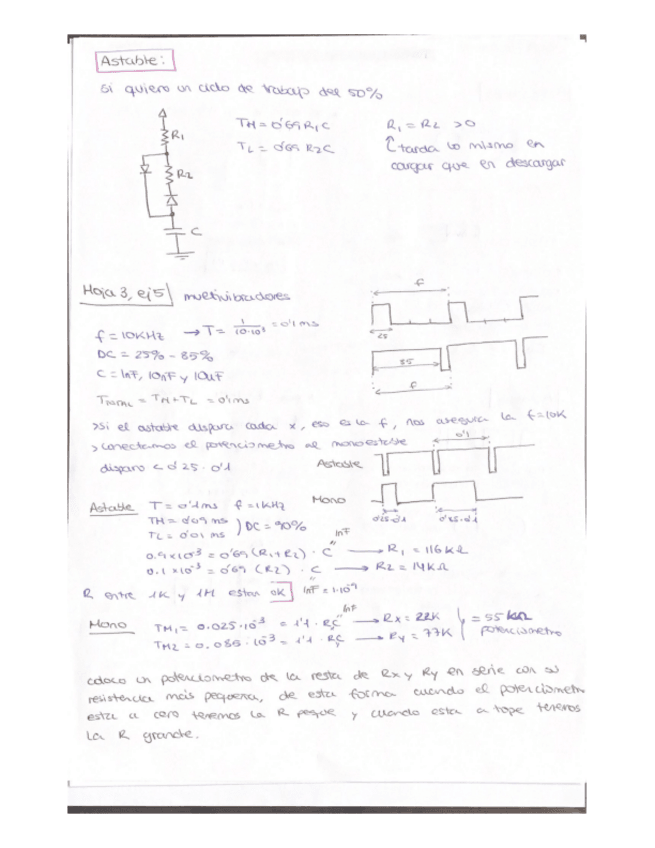 Astable:
si quiero un ciclo de trabajo del 50%
R1
R2
C
TH = 0'69 R1 C
TL = 0'69 R2 C
R1 = R2 > 0
↑ tarda lo mismo en
cargar que en descargar
Hoja 3, ej 5 multivibradores
f = 10KHz → T = 1/10·10³ = 0'1 ms
DC = 25% - 85%
C = 1nF, 10nF y 10uF
TTOTAL = TH + TL = 0'1ms
f
25
85
f
> Si el astable dispara cada x, eso es la f, nos asegura la f=10K
> conectamos el potenciometro al monoestable
disparo < 0'25 · 0'1
0'1
Astable
Mono
0'25·0'1
0'85·0'1
Astable T = 0'1ms f = 1KHz
TH = 0'09 ms
TL = 0'01 ms
) DC = 90%
1nF
0.9×10-3 = 0'69 (R1+R2) · C → R1 = 116KΩ
0.1×10-3 = 0'69 (R2) · C → R2 = 14KΩ
1nF = 1·10-9
R entre 1K y 1M estan OK
1nF
Mono TM1 = 0.025·10-3 = 1'1 · RC → Rx = 22K
TM2 = 0.085·10-3 = 1'1 · RC → Ry = 77K
= 55KΩ
potenciometro
coloco un potenciometro de la resta de Rx y Ry en serie con su
resistencia mais pequeña, de esta forma cuando el potenciometro
esta a cero tenemos la R peque y cuando esta a tope tenemos
la R grande.